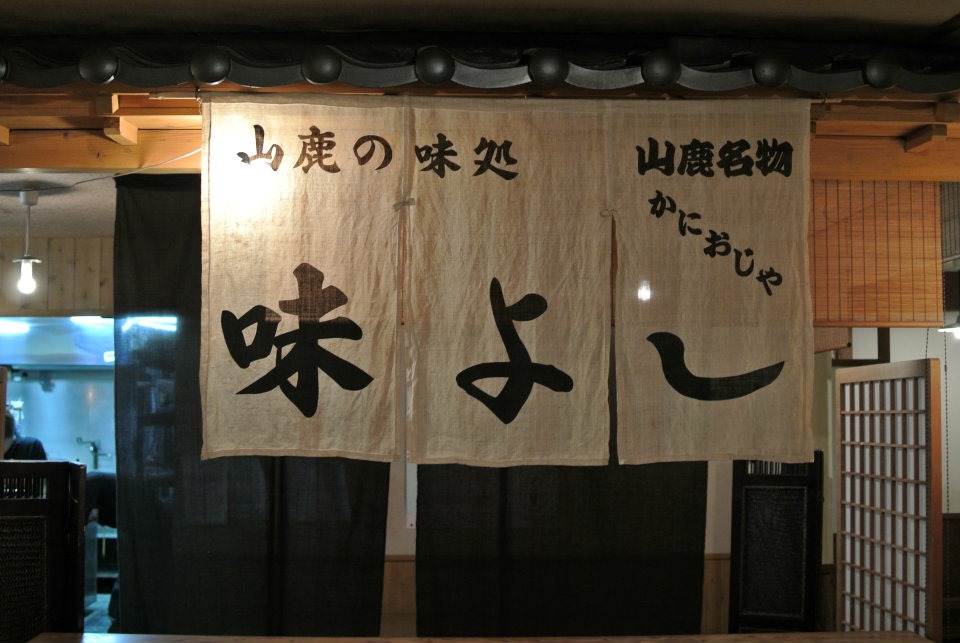 山鹿の味処
味よし
山鹿名物
かにおじや